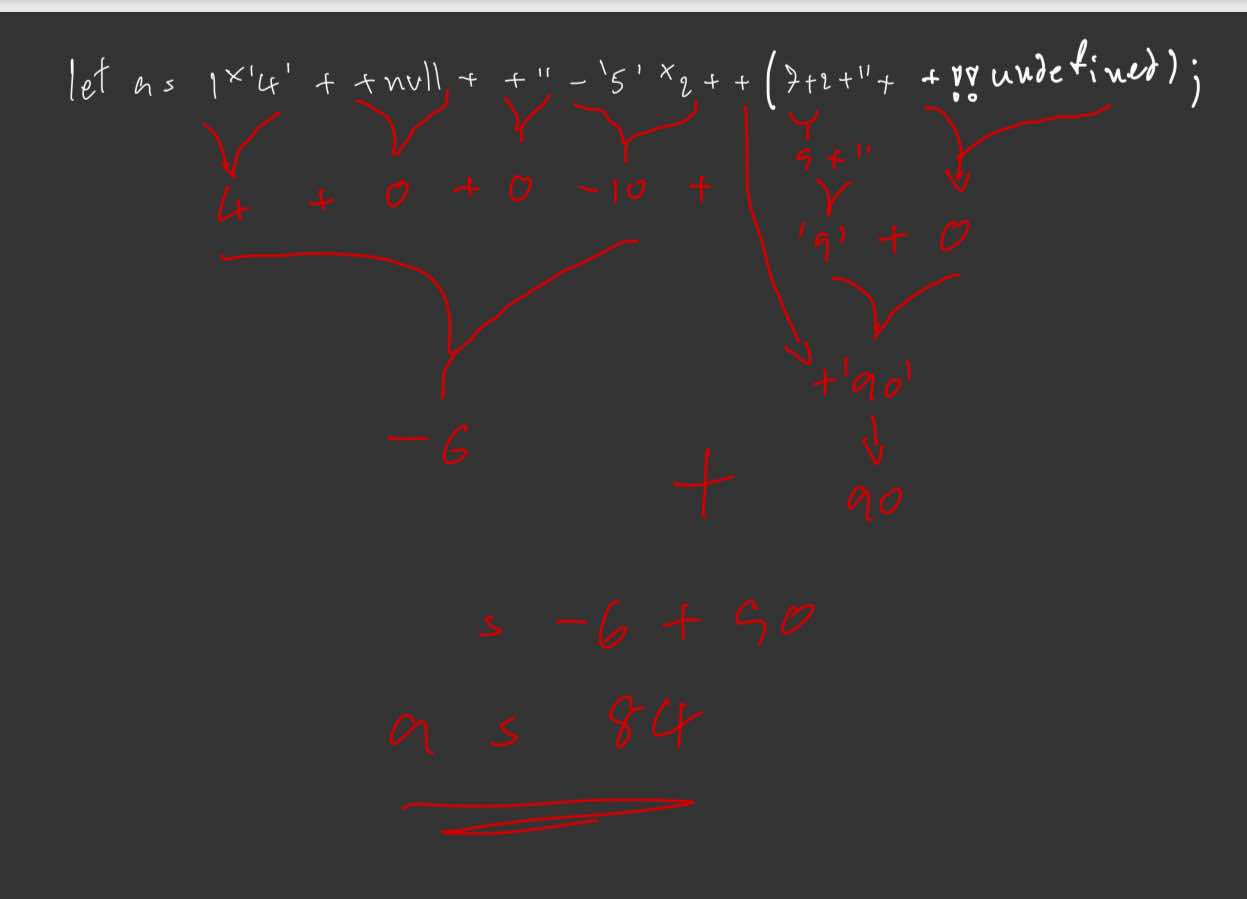 let a = 1 × '4' + +null + +'' - '5' × 2 + + (7+2+'' + +!!undefined);
9 + ''
4 + 0 + 0 - 10 +
'9' + 0
+'90'
- 6 + 90
= -6 + 90
a = 84